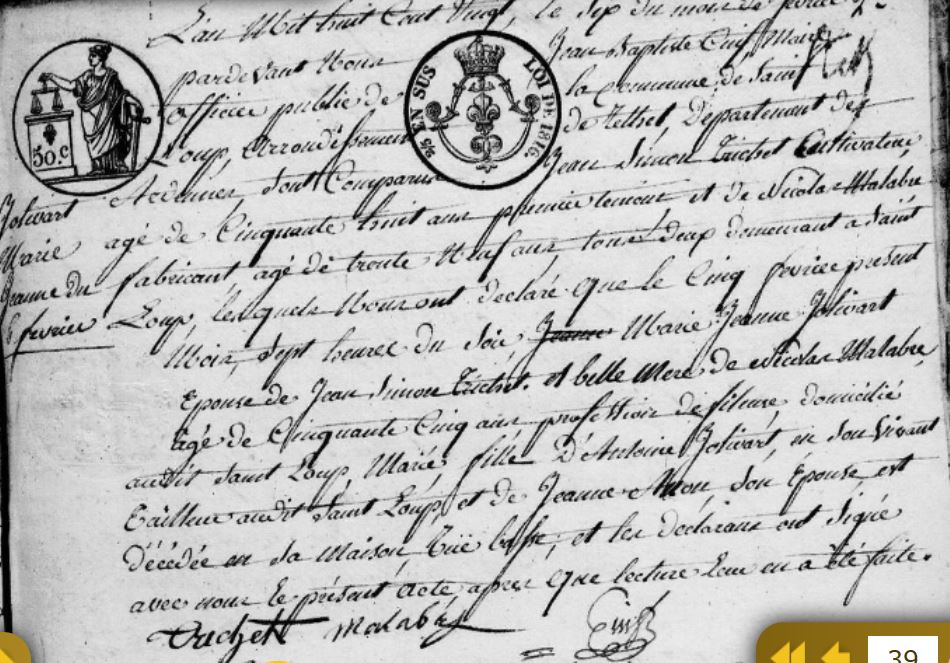 L'an Mil huit Cent Vingt, le six du mois de fevrier
pardevant Nous Jean Baptiste Maire
officier public de la Commune de Saint
Loup, Arrondissement de Rethel, Departement des
Ardennes, sont Comparus Jean Simon Trichet Cultivateur
agé de Cinquante huit ans premier temoin et de Nicolas Malabre
fabricant, agé de trente Neuf ans, tous deux demeurant a Saint
Loup, lesquels Nous ont declaré que le Cinq fevrier present
Mois, sept heures du Soir Jeanne Marie Jeanne Jolivart
Epouse de Jean Simon Trichet. et belle Mere de Nicolas Malabre,
agé de Cinquante Cinq ans profession de fileuse domicilié
audit Saint Loup, Mariée, fille D'Antoine Jolivart, en son vivant
tailleur audit Saint Loup, et de Jeanne son Epouse, est
décédée en sa Maison, basse, et les declarans ont signé
avec nous le présent acte apres que lecture Leur en a été faite.
Trichet Malabre
Jolivart
Marie
Jeanne du
5 fevrier
50.C
25 EN SUS LOI DE 1816.
39